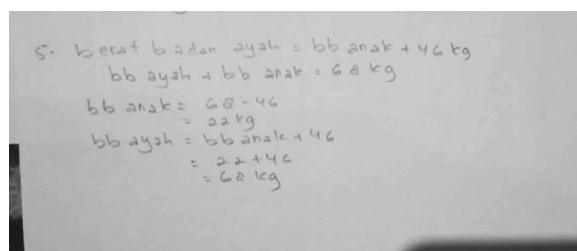 5. berat badan ayah = bb anak + 46 kg
bb ayah + bb anak = 68 kg
bb anak = 68 - 46
= 22 kg
bb ayah = bb anak + 46
= 22 + 46
= 68 kg